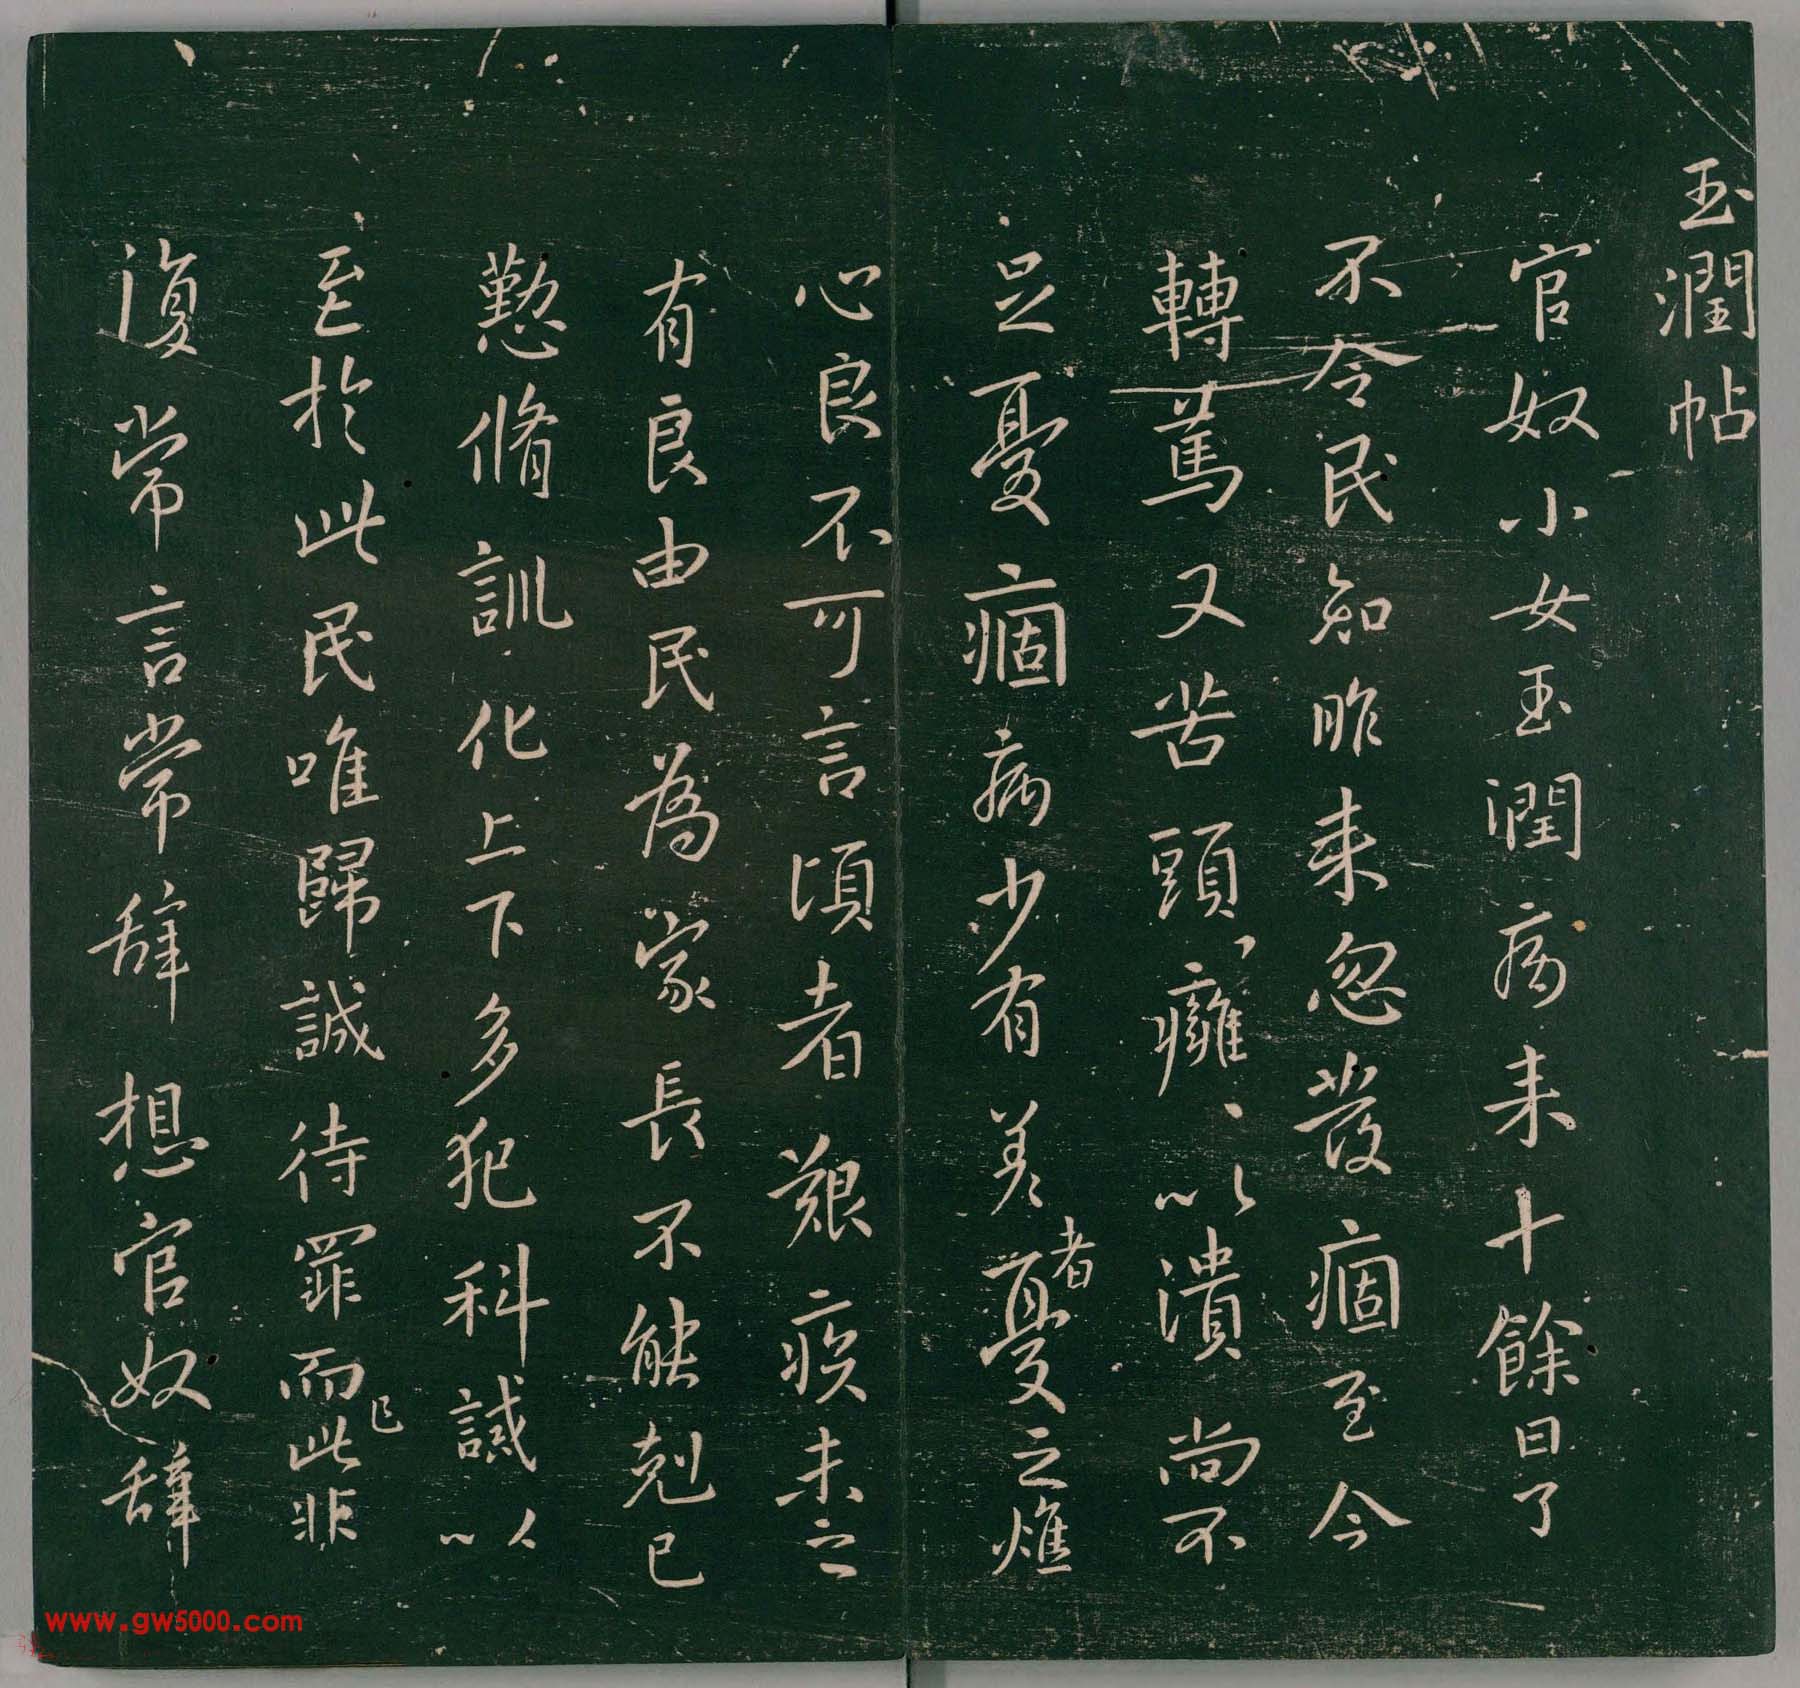 玉潤帖
官奴小女玉潤病来十餘日了
不令民知昨来忽發痼至今
轉篤又苦頭癰癰以潰尚不
足憂痼病少有差者憂之燋
心良不可言頃者艱疾未之
有良由民為家長不能剋己
懃脩訓化上下多犯科誡以
至於此民唯歸誠待罪而已此非
復常言常辭想官奴辭
www.gw5000.com